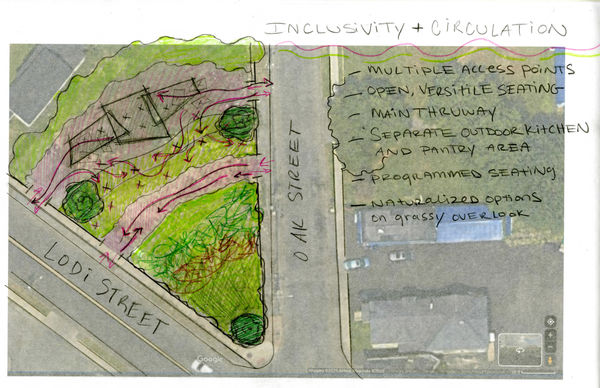 INCLUSIVITY + CIRCULATION
— MULTIPLE ACCESS POINTS
— OPEN, VERSITILE SEATING
— MAIN THRUWAY
— SEPARATE OUTDOOR KITCHEN
AND PANTRY AREA
— PROGRAMMED SEATING
— NATURALIZED OPTIONS
ON GRASSY OVERLOOK
OAK STREET
LODI STREET
Google